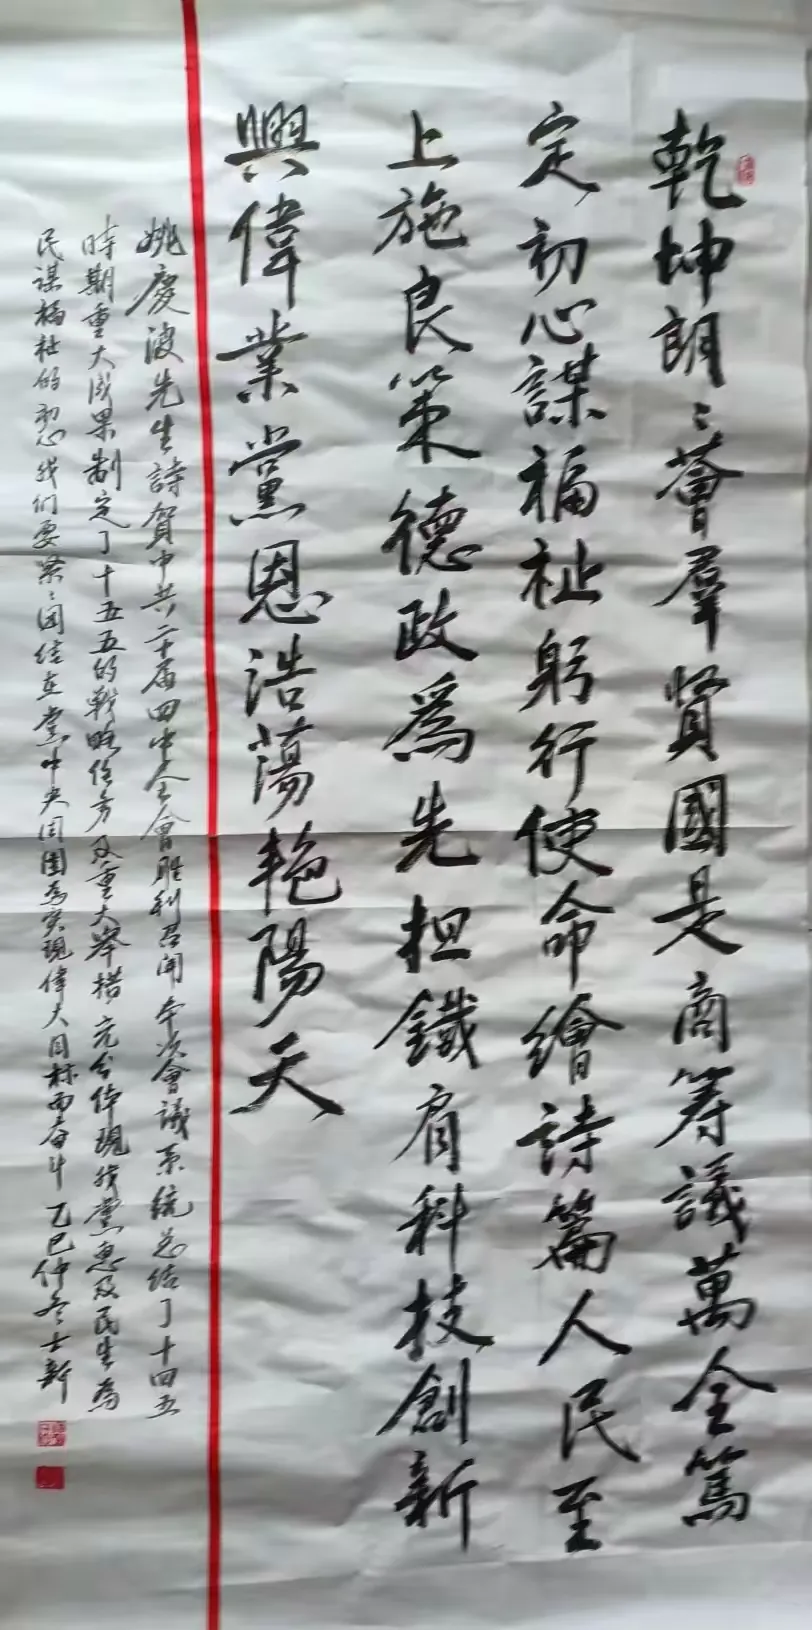 乾坤朗〻薈羣賢國是商籌議萬全篤
定初心謀福祉躬行使命繪詩篇人民至
上施良策德政爲先担鐵肩科技創新
興偉業黨恩浩蕩艳陽天
姚慶波先生詩賀中共二十届四中全會胜利召開本次會議系統总结了十四五
時期重大成果制定了十五五的戰略任务及重大举措充分体現我黨惠及民生為
民谋福祉的初心我们要紧〻团结在黨中央周围為实現偉大目标而奋斗乙巳仲冬士新